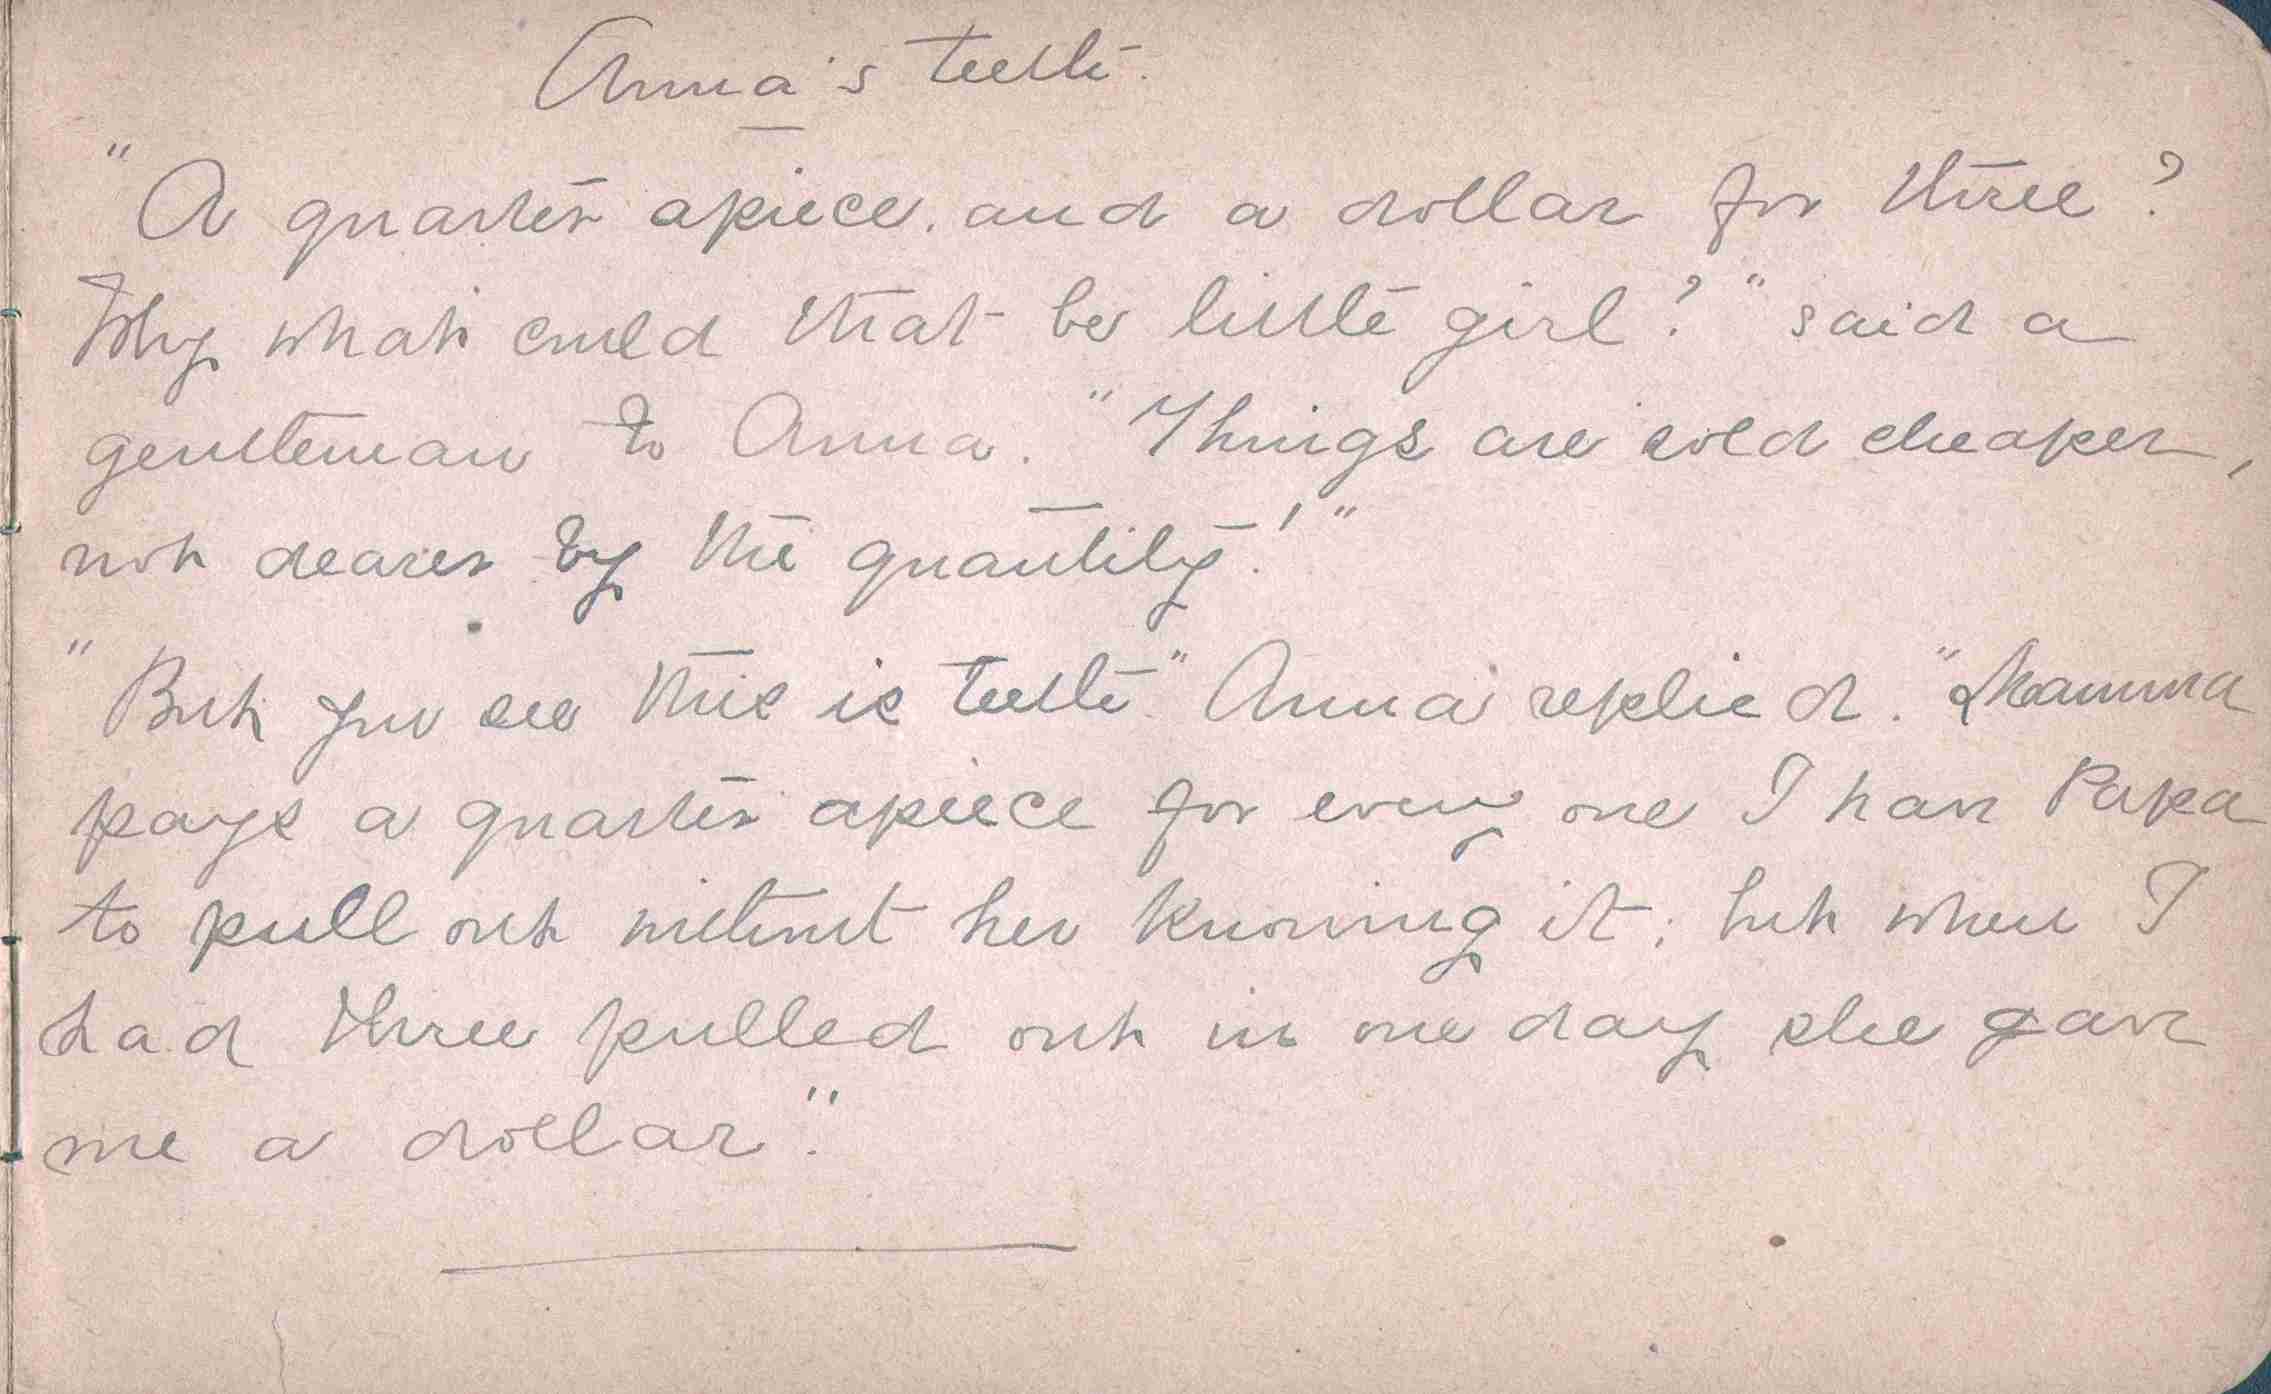 Anna's teeth.
"A quarter apiece. and a dollar for three?
Why what could that be little girl?" said a
gentleman to Anna. "Things are sold cheaper,
not dearer by the quantity!"
"But you see this is teeth" Anna replied. "Mamma
pays a quarter apiece for every one I have Papa
to pull out without her knowing it; but when I
had three pulled out in one day she gave
me a dollar."